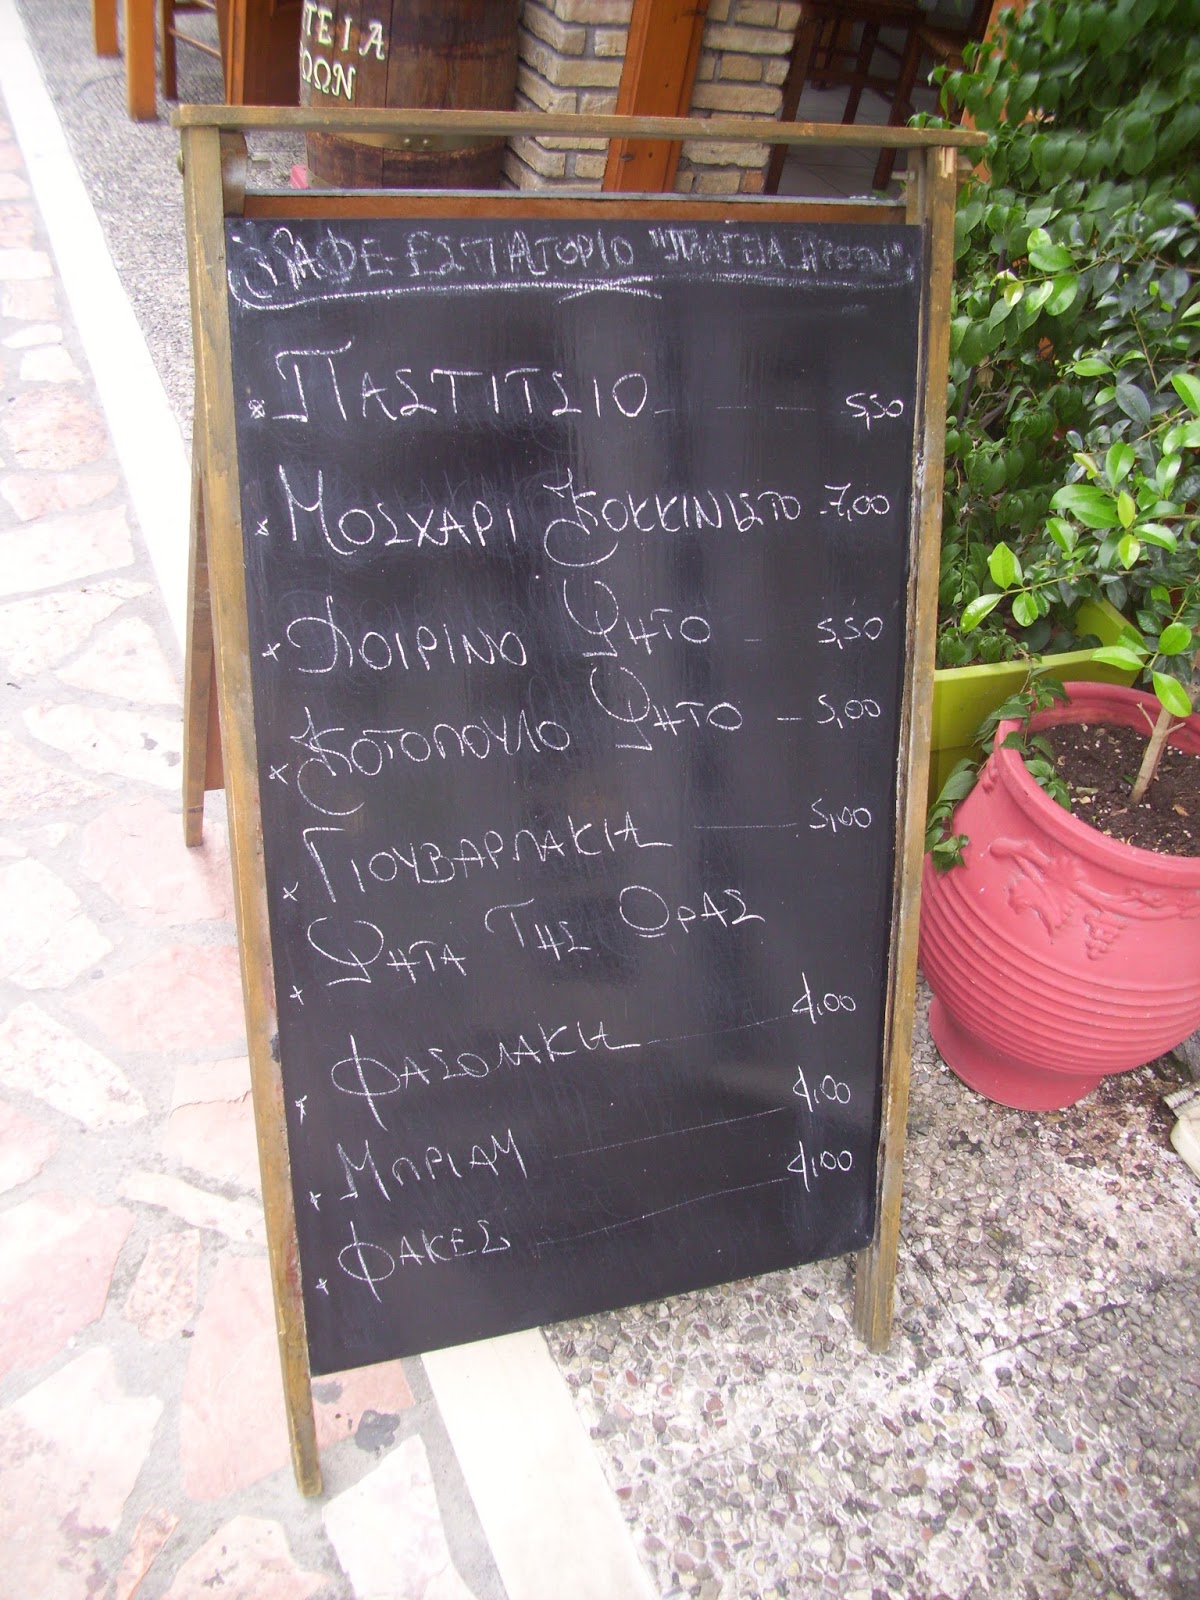 ΤΕΙΑ
ΩΩΝ
ΚΑΦΕ-ΕΣΤΙΑΤΟΡΙΟ "ΠΛΑΤΕΙΑ ΗΡΩΩΝ"
* ΠΑΣΤΙΤΣΙΟ - - - - 5,50
x ΜΟΣΧΑΡΙ ΚΟΚΚΙΝΙΣΤΟ - 7,00
x ΧΟΙΡΙΝΟ ΨΗΤΟ - 5,50
x ΚΟΤΟΠΟΥΛΟ ΨΗΤΟ - 5,00
x ΓΙΟΥΒΑΡΛΑΚΙΑ 5,00
x ΨΗΤΑ ΤΗΣ ΩΡΑΣ
x ΦΑΣΟΛΑΚΙΑ 4,00
x ΜΠΡΙΑΜ 4,00
x ΦΑΚΕΣ 4,00